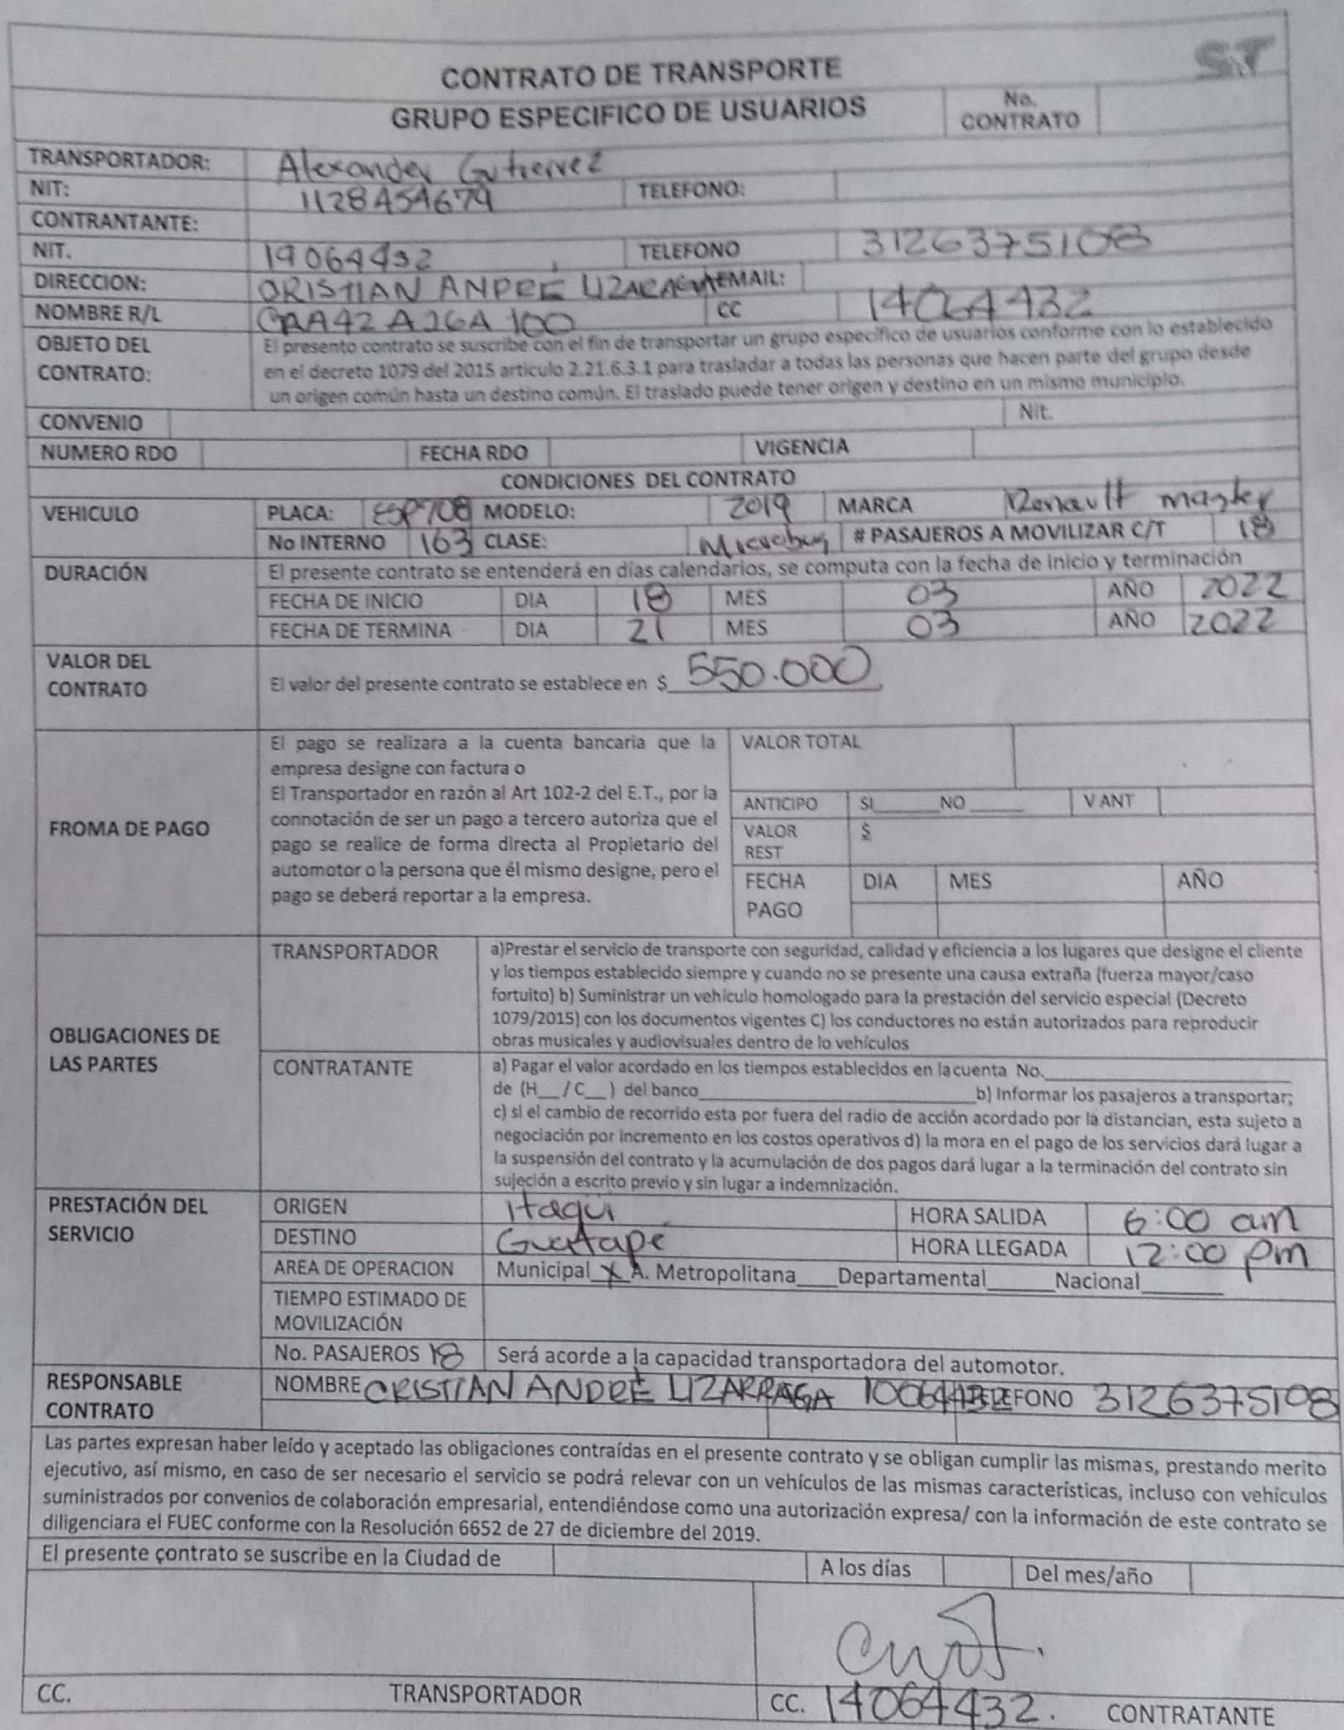 ST
CONTRATO DE TRANSPORTE
GRUPO ESPECIFICO DE USUARIOS
No. CONTRATO
TRANSPORTADOR: Alexander Gutierrez
NIT: 1128454679 TELEFONO:
CONTRANTANTE:
NIT. 14064432 TELEFONO 3126375108
DIRECCION: CRISTIAN ANDRÉ LIZARAGA EMAIL:
NOMBRE R/L CRA42 A 26A 100 CC 14064432
OBJETO DEL CONTRATO: El presento contrato se suscribe con el fin de transportar un grupo específico de usuarios conforme con lo establecido
en el decreto 1079 del 2015 articulo 2.21.6.3.1 para trasladar a todas las personas que hacen parte del grupo desde
un origen común hasta un destino común. El traslado puede tener origen y destino en un mismo municipio.
CONVENIO Nit.
NUMERO RDO FECHA RDO VIGENCIA
CONDICIONES DEL CONTRATO
VEHICULO PLACA: ESP708 MODELO: 2019 MARCA Renault master
No INTERNO 163 CLASE: Microbus # PASAJEROS A MOVILIZAR C/T 18
DURACIÓN El presente contrato se entenderá en días calendarios, se computa con la fecha de inicio y terminación
FECHA DE INICIO DIA 18 MES 03 AÑO 2022
FECHA DE TERMINA DIA 21 MES 03 AÑO 2022
VALOR DEL CONTRATO El valor del presente contrato se establece en $ 550.000
FROMA DE PAGO
El pago se realizara a la cuenta bancaria que la
empresa designe con factura o
El Transportador en razón al Art 102-2 del E.T., por la
connotación de ser un pago a tercero autoriza que el
pago se realice de forma directa al Propietario del
automotor o la persona que él mismo designe, pero el
pago se deberá reportar a la empresa.
VALOR TOTAL
ANTICIPO SI______NO______ V ANT
VALOR REST $
FECHA PAGO DIA MES AÑO
OBLIGACIONES DE LAS PARTES
TRANSPORTADOR a)Prestar el servicio de transporte con seguridad, calidad y eficiencia a los lugares que designe el cliente
y los tiempos establecido siempre y cuando no se presente una causa extraña (fuerza mayor/caso
fortuito) b) Suministrar un vehículo homologado para la prestación del servicio especial (Decreto
1079/2015) con los documentos vigentes C) los conductores no están autorizados para reproducir
obras musicales y audiovisuales dentro de lo vehículos
CONTRATANTE a) Pagar el valor acordado en los tiempos establecidos en la cuenta No.______
de (H__ / C__ ) del banco______b) Informar los pasajeros a transportar;
c) si el cambio de recorrido esta por fuera del radio de acción acordado por la distancian, esta sujeto a
negociación por incremento en los costos operativos d) la mora en el pago de los servicios dará lugar a
la suspensión del contrato y la acumulación de dos pagos dará lugar a la terminación del contrato sin
sujeción a escrito previo y sin lugar a indemnización.
PRESTACIÓN DEL SERVICIO ORIGEN Itagui HORA SALIDA 6:00 am
DESTINO Guatape HORA LLEGADA 12:00 pm
AREA DE OPERACION Municipal X A. Metropolitana____Departamental______Nacional______
TIEMPO ESTIMADO DE MOVILIZACIÓN
No. PASAJEROS 18 Será acorde a la capacidad transportadora del automotor.
RESPONSABLE CONTRATO NOMBRE CRISTIAN ANDRÉ LIZARRAGA TELEFONO 3126375108
Las partes expresan haber leído y aceptado las obligaciones contraídas en el presente contrato y se obligan cumplir las mismas, prestando merito
ejecutivo, así mismo, en caso de ser necesario el servicio se podrá relevar con un vehículos de las mismas características, incluso con vehículos
suministrados por convenios de colaboración empresarial, entendiéndose como una autorización expresa/ con la información de este contrato se
diligenciara el FUEC conforme con la Resolución 6652 de 27 de diciembre del 2019.
El presente contrato se suscribe en la Ciudad de A los días Del mes/año
CC. TRANSPORTADOR CC. 14064432. CONTRATANTE